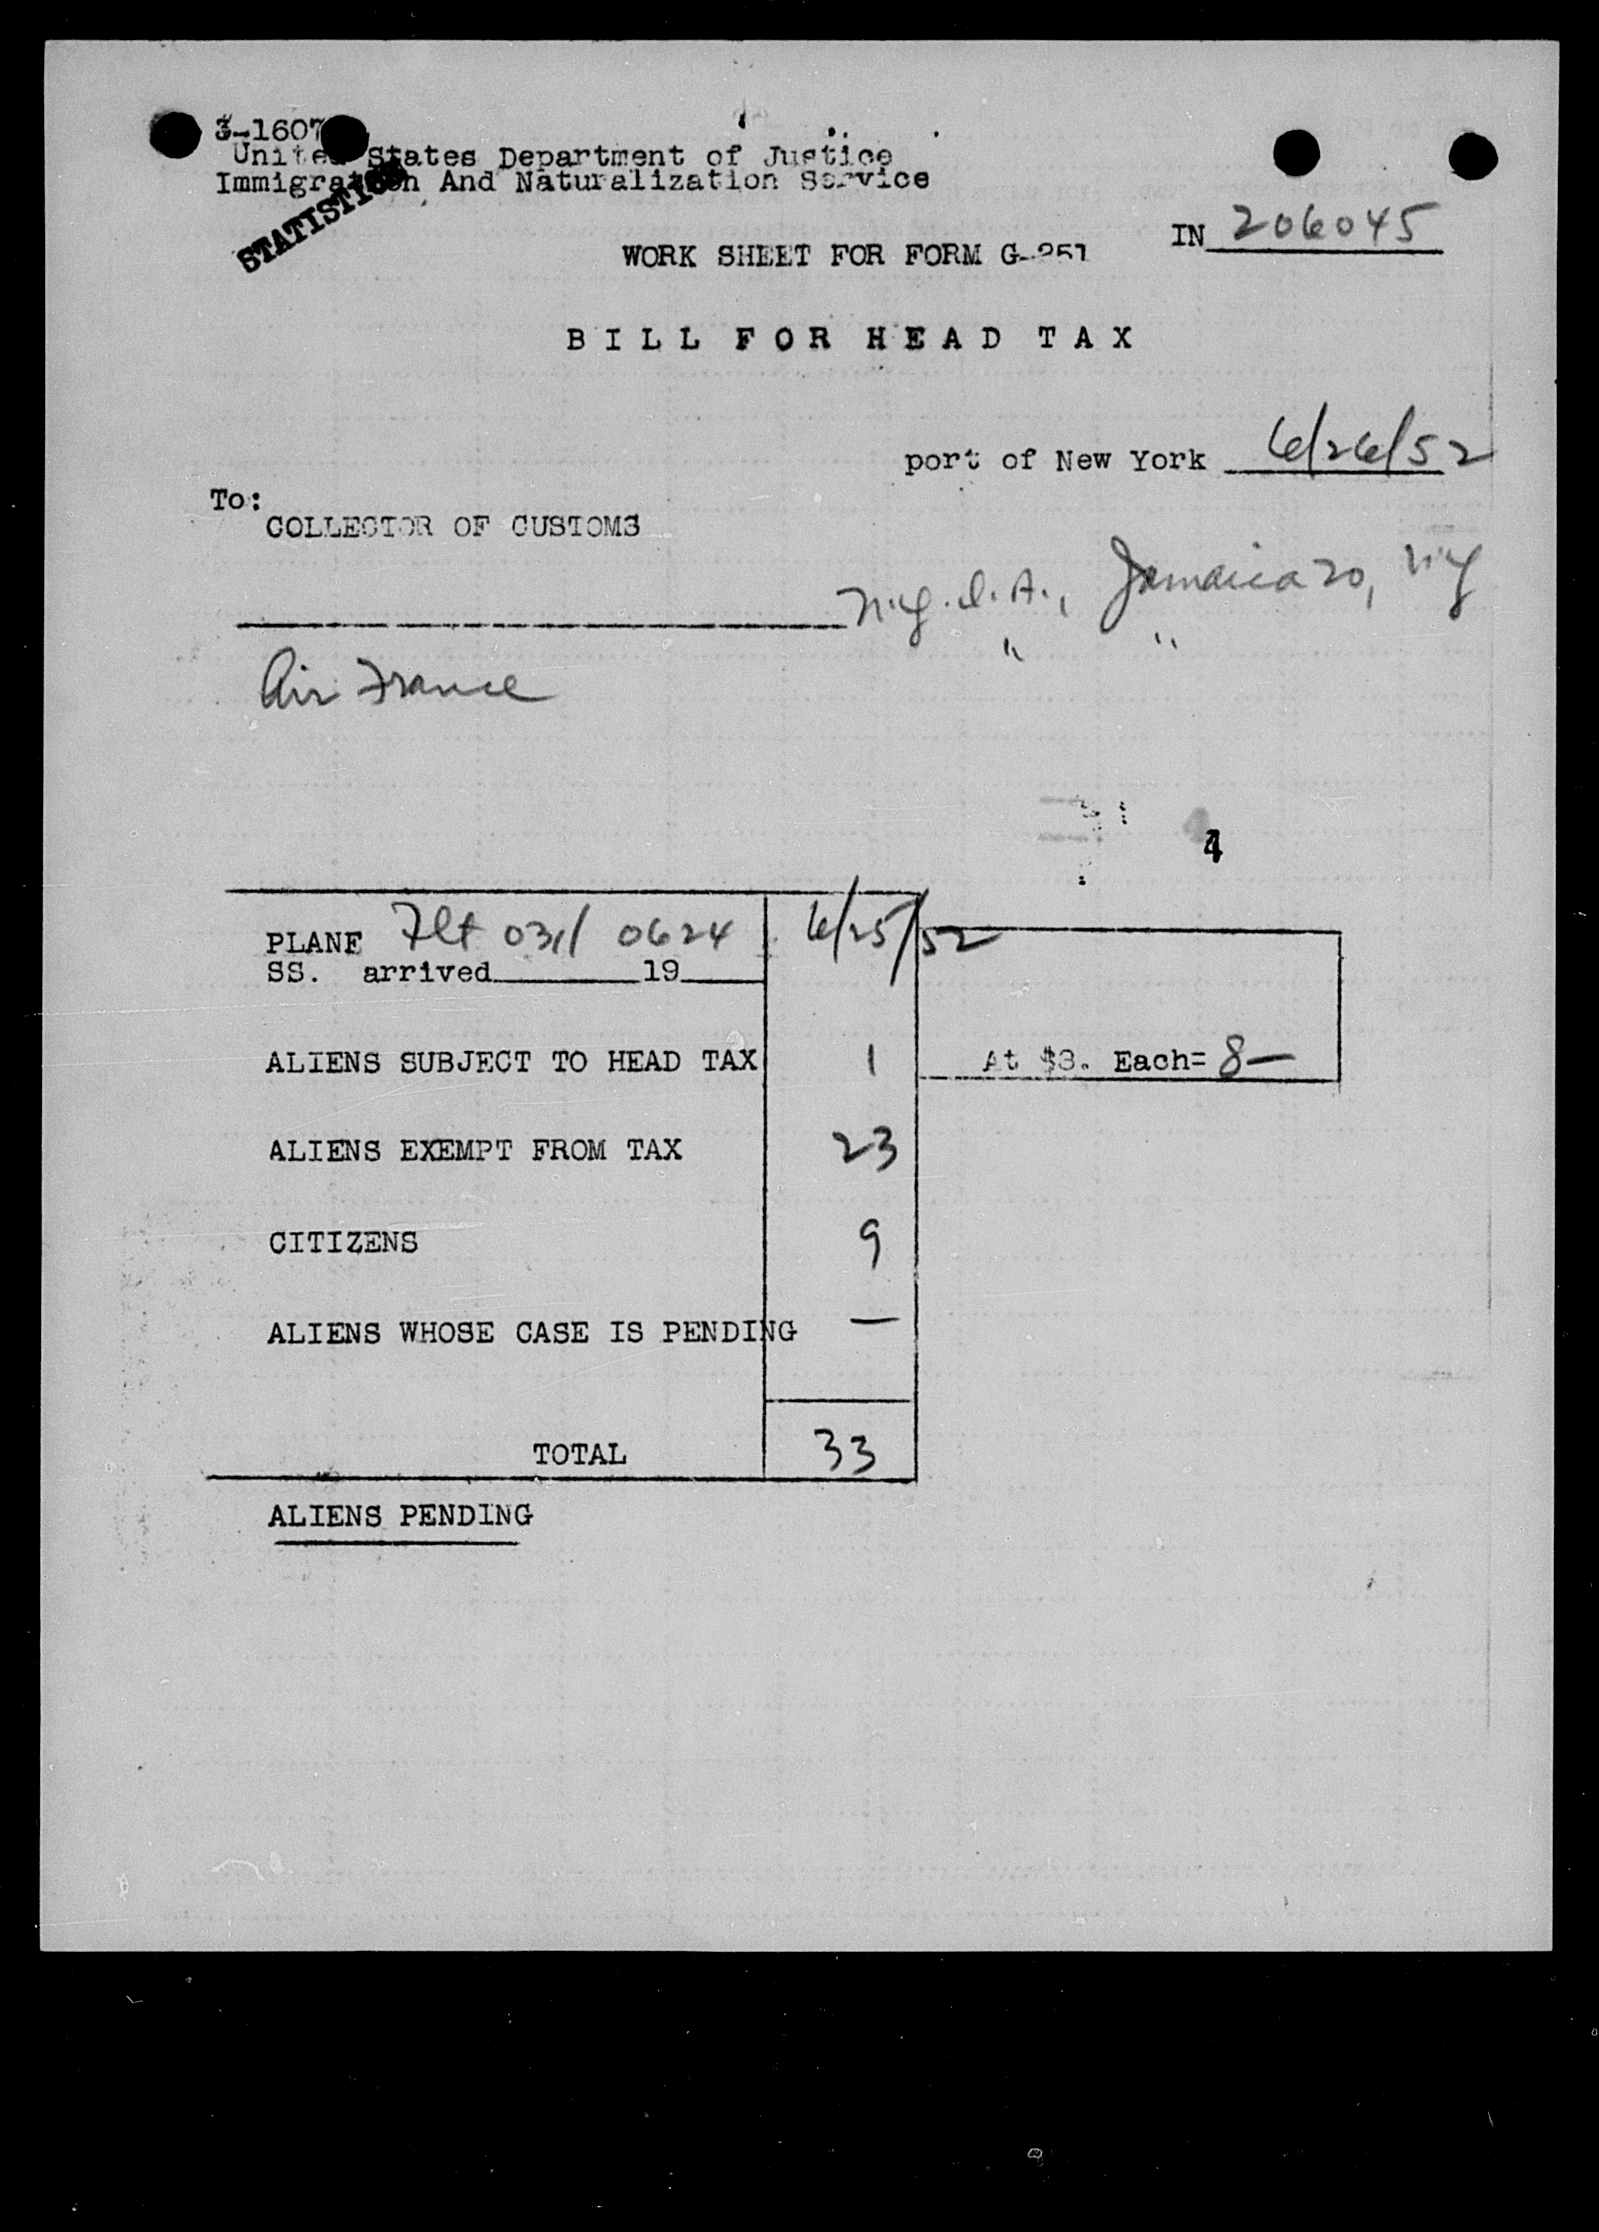 3-1607
United States Department of Justice
Immigration And Naturalization Service
STATISTICS
IN 206045
WORK SHEET FOR FORM G-251
BILL FOR HEAD TAX
port of New York 6/26/52
To:
COLLECTOR OF CUSTOMS
N.Y.I.A., Jamaica 20, NY
" "
Air France
4
PLANE Flt 031/ 0624 6/25/52
SS. arrived 19
ALIENS SUBJECT TO HEAD TAX 1 At $8. Each= 8—
ALIENS EXEMPT FROM TAX 23
CITIZENS 9
ALIENS WHOSE CASE IS PENDING —
TOTAL 33
ALIENS PENDING